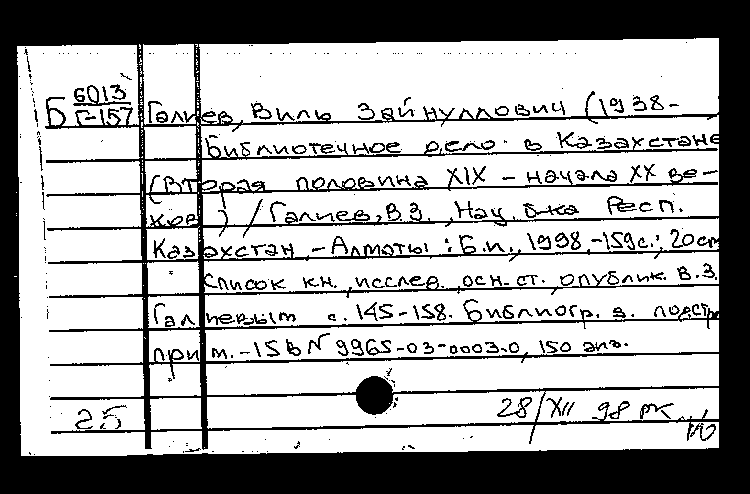 Б 6013
Г-157 Галиев, Виль Зайнуллович (1938-
Библиотечное дело в Казахстане
(Вторая половина XIX - начала XX ве-
ков) / Галиев, В.З., Нац. б-ка Респ.
Казахстан, - Алматы : Б.и., 1998, -159с.; 20см
Список кн., исслед. осн. ст., опублик. В.З.
Галиевым с. 145-158. Библиогр. в подстр
прим. - ISBN 9965-03-0003-0, 150 экз.
25
28/XII 98 рк